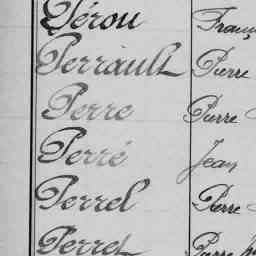 Pérou
Perrault Pierre
Perre Pierre
Perré Jean
Perrel Pierre
Perret Pierre